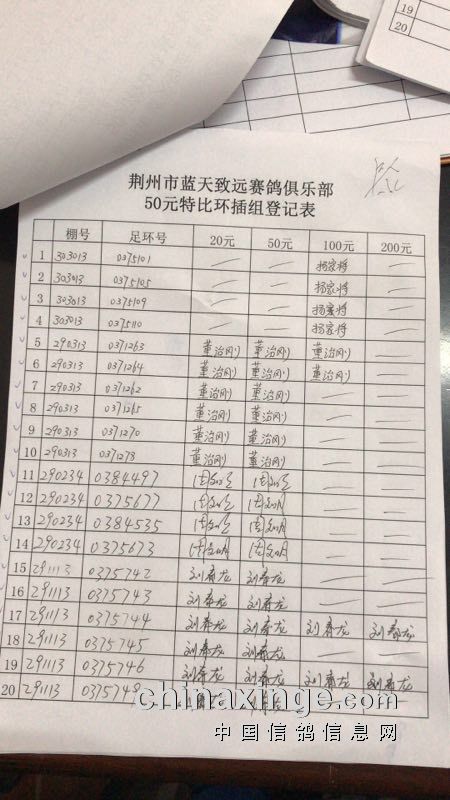 19
20
荆州市蓝天致远赛鸽俱乐部
50元特比环插组登记表
棚号 足环号 20元 50元 100元 200元
1 303013 0375101 — — 杨家将 —
2 303013 0375105 — — 杨家将 —
3 303013 0375109 — — 杨家将 —
4 303013 0375110 — — 杨家将 —
5 290313 0371263 董治刚 董治刚 董治刚 —
6 290313 0371264 董治刚 董治刚 董治刚 —
7 290313 0371262 董治刚 董治刚 — —
8 290313 0371265 董治刚 董治刚 — —
9 290313 0371270 董治刚 董治刚 — —
10 290313 0371273 董治刚 董治刚 — —
11 290234 0384497 — —
12 290234 0375677 — —
13 290234 0384535 — —
14 290234 0375673 — —
15 291113 0375742 刘春龙 刘春龙 — —
16 291113 0375743 刘春龙 刘春龙 — —
17 291113 0375744 刘春龙 刘春龙 刘春龙 刘春龙
18 291113 0375745 刘春龙 刘春龙 — —
19 291113 0375746 刘春龙 刘春龙 刘春龙 刘春龙
20 291113 0375748
chinaxinge.com
中国信鸽信息网